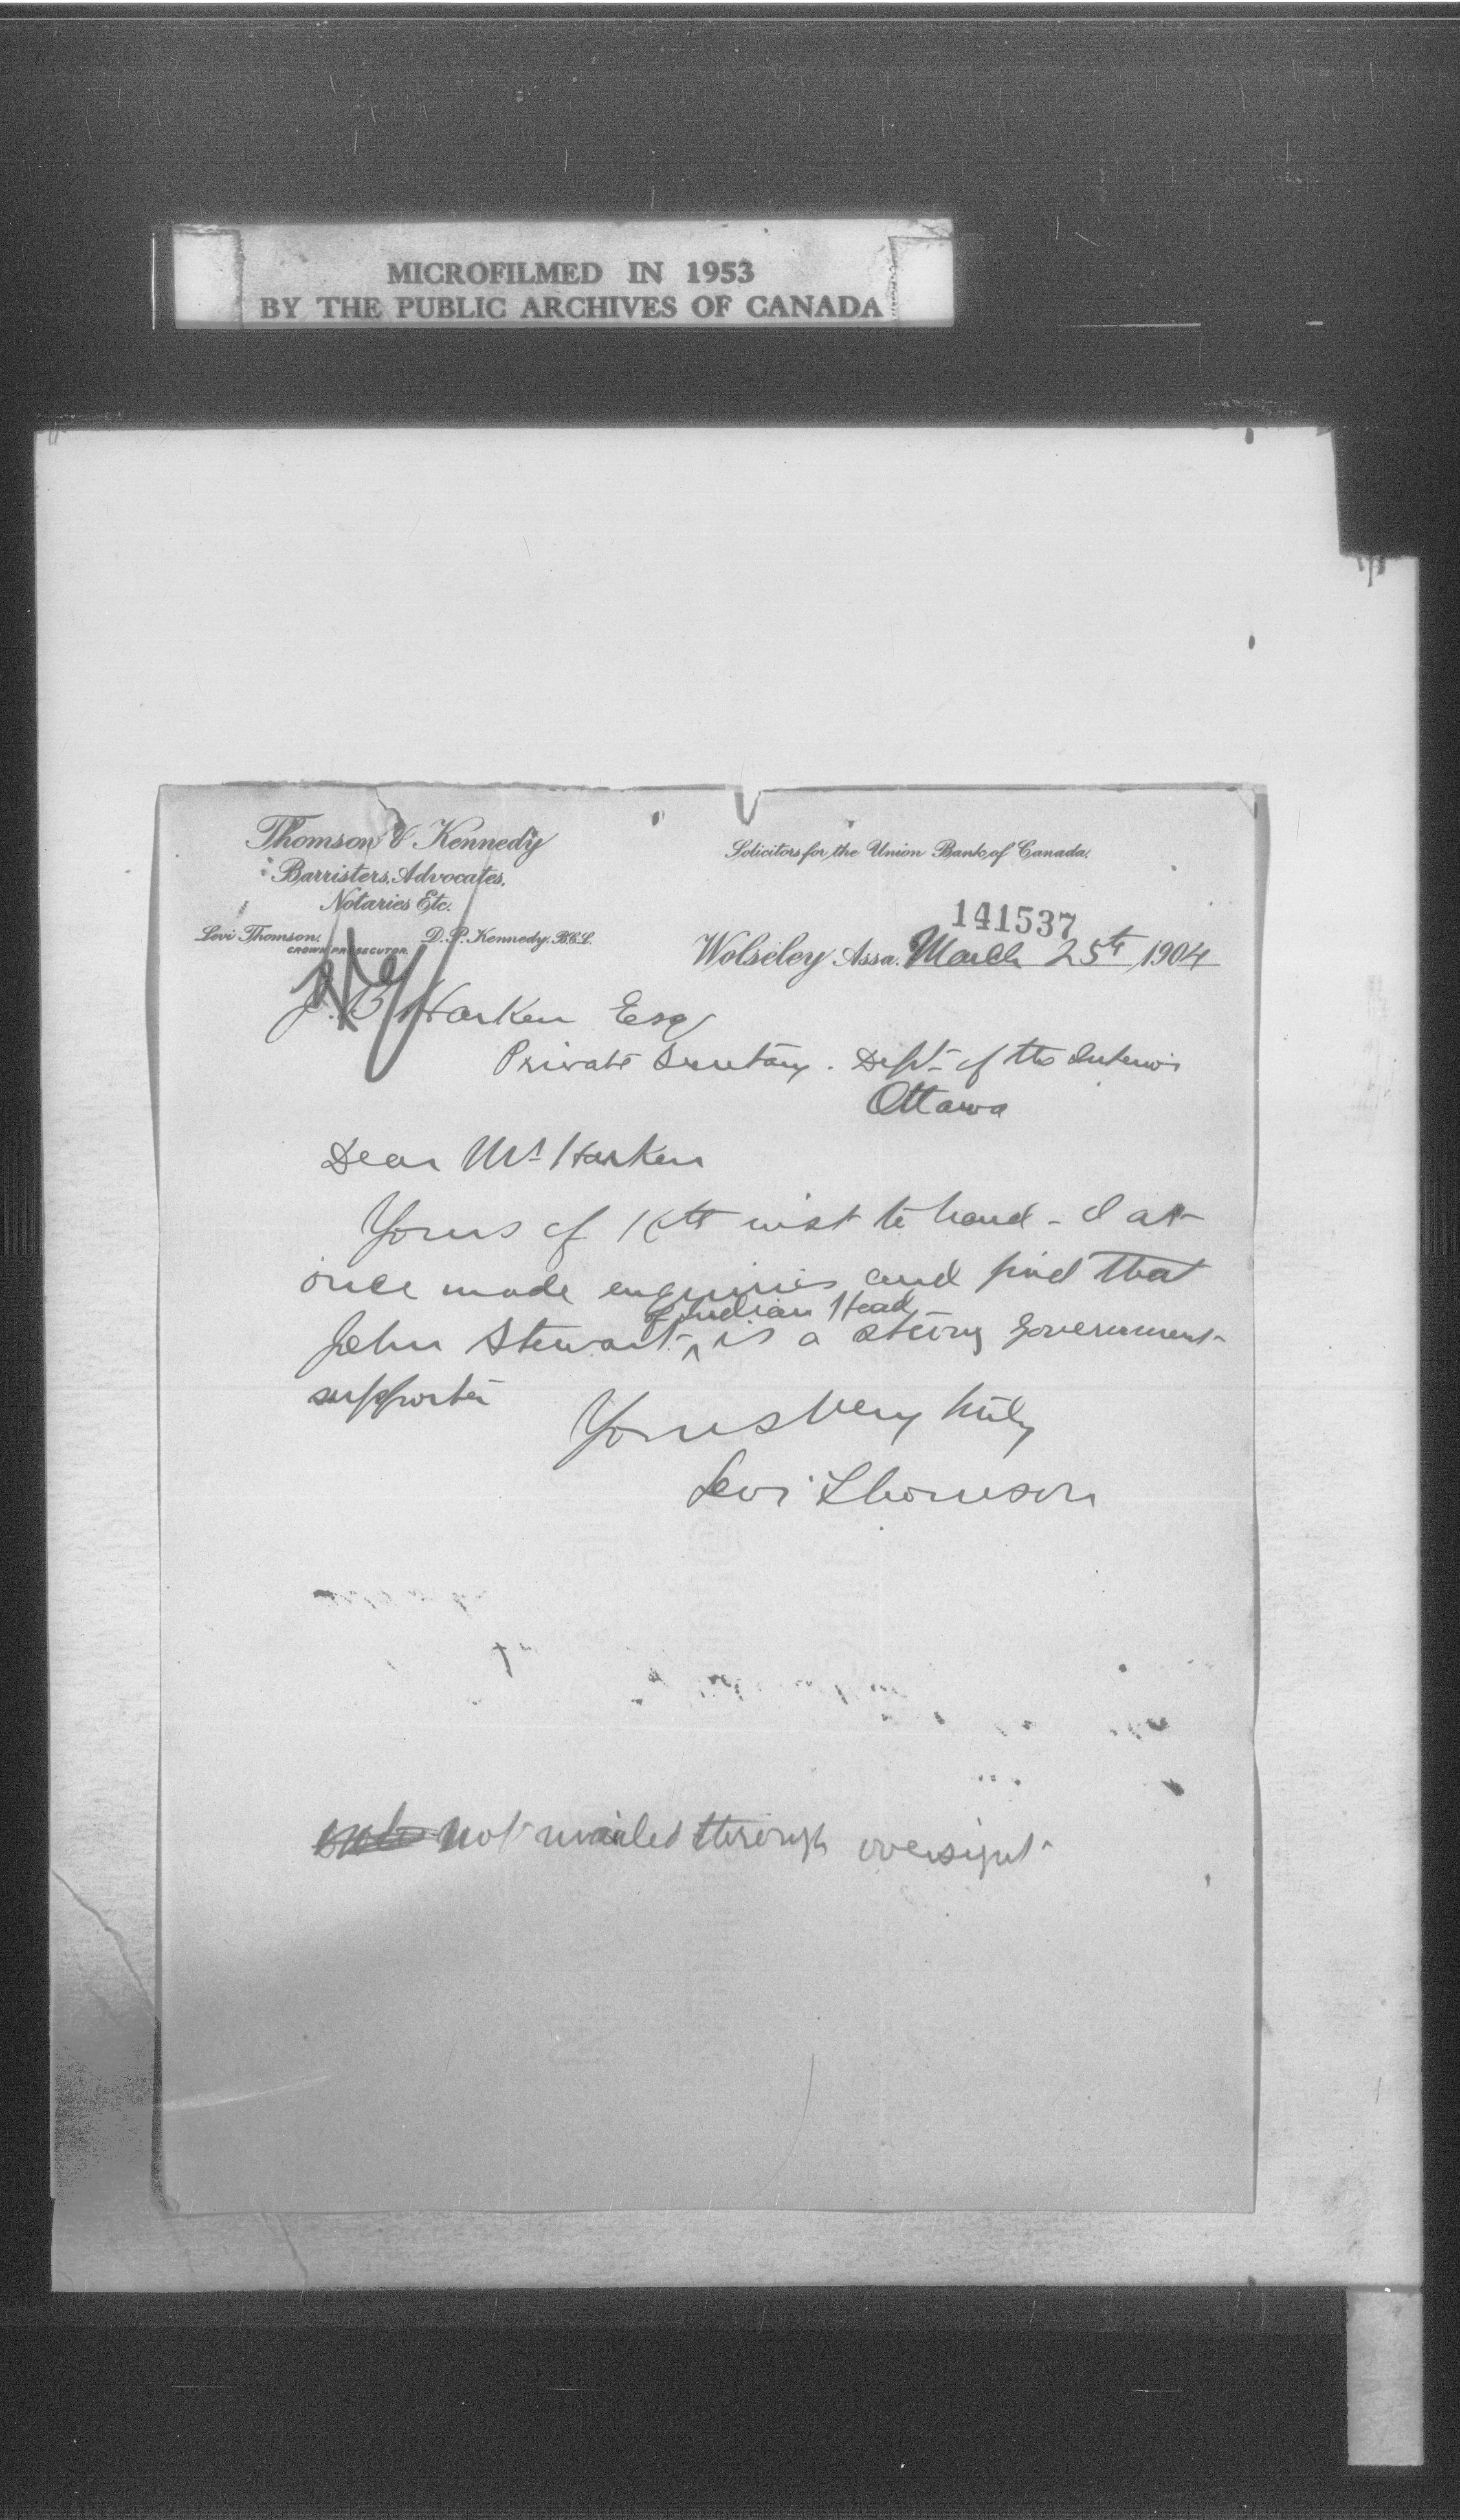 MICROFILMED IN 1953
BY THE PUBLIC ARCHIVES OF CANADA
Thomson & Kennedy
Barristers, Advocates,
Notaries Etc.
Levi Thomson, D. P. Kennedy, B.C.L.
CROWN PROSECUTOR
Solicitors for the Union Bank of Canada.
141537
Wolseley Assa. March 25th 1904
J. B. Harken Esq
Private Secretary. Dept of the Interior
Ottawa
Dear Mr Harken
Yours of inst to hand - I at
once made enquiries and find that
of Indian Head
John Stewart ^ is a strong Government
supporter
Yours very truly
Levi Thomson
not mailed through oversight